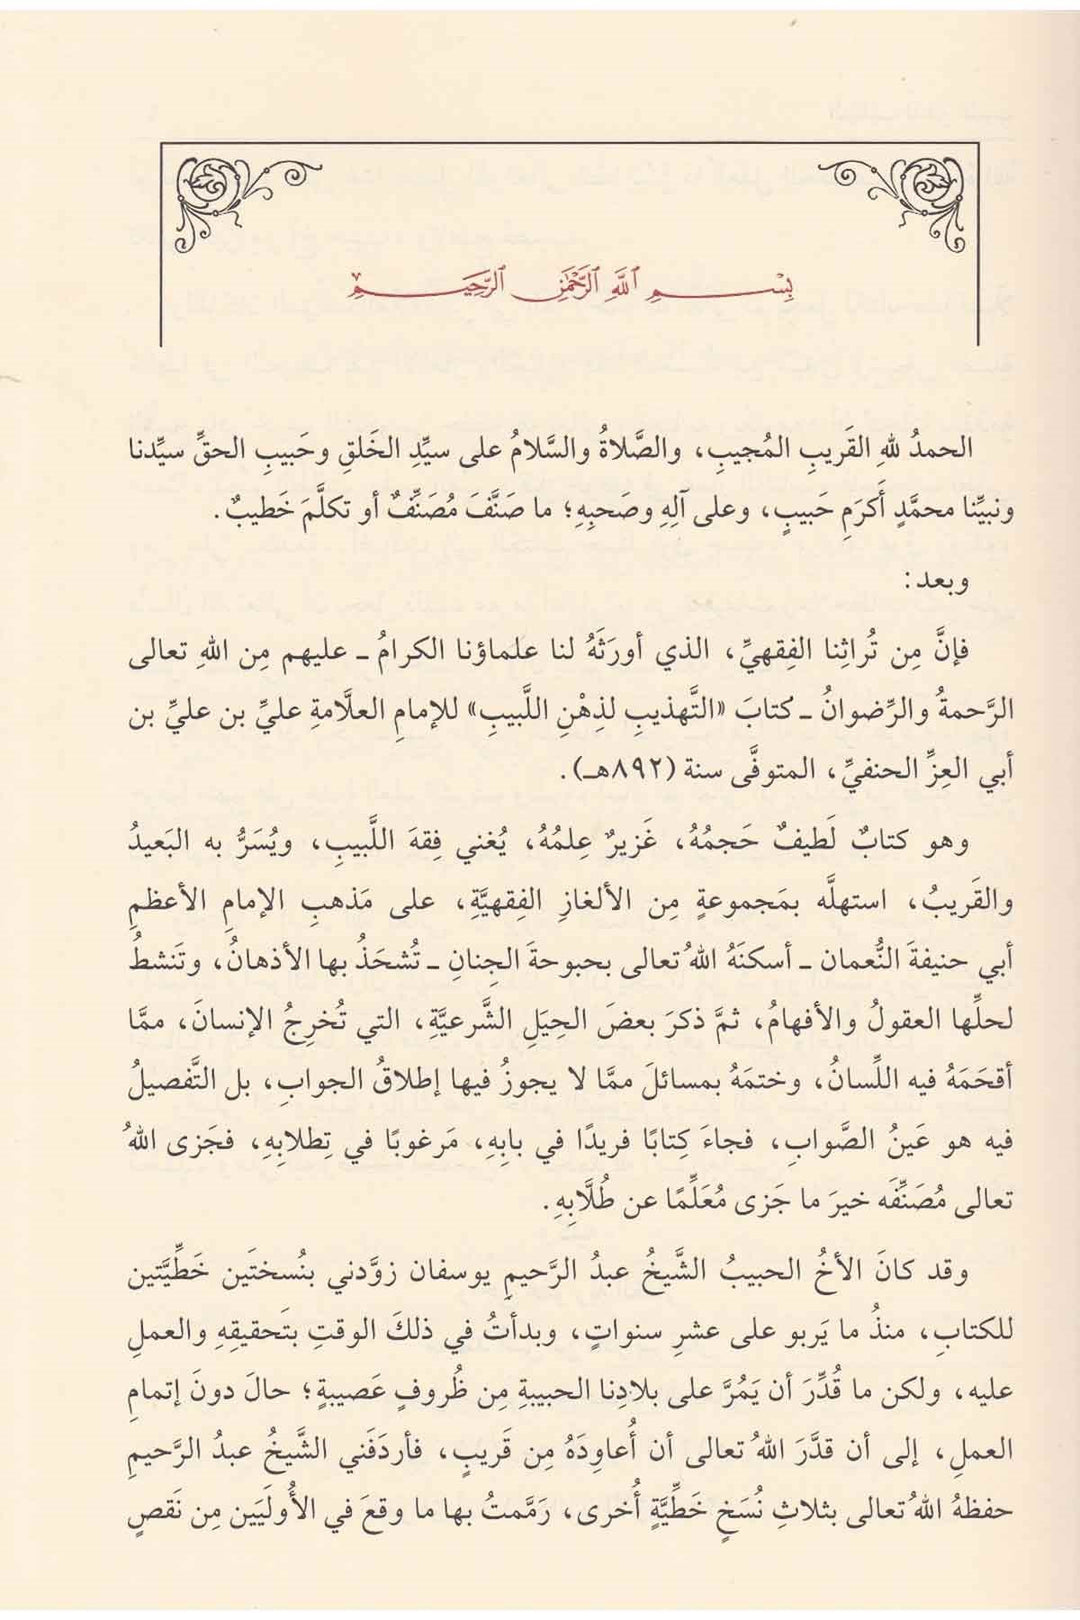 بِسْمِ ٱللَّهِ ٱلرَّحْمَٰنِ ٱلرَّحِيمِ
الحمدُ للهِ القَريبِ المُجيبِ، والصَّلاةُ والسَّلامُ على سيِّدِ الخَلقِ وحَبيبِ الحقِّ سيِّدنا
ونبيِّنا محمَّدٍ أَكرَمِ حَبيبٍ، وعلى آلِهِ وصَحبِهِ؛ ما صَنَّفَ مُصَنِّفٌ أو تكلَّمَ خَطيبٌ.
وبعد:
فإنَّ مِن تُراثِنا الفِقهيِّ، الذي أورَثَهُ لنا علماؤنا الكرامُ ـ عليهم مِن اللهِ تعالى
الرَّحمةُ والرِّضوانُ ـ كتابَ «التَّهذيبِ لذِهْنِ اللَّبيبِ» للإمامِ العلَّامةِ عليِّ بن عليِّ بن
أبي العِزِّ الحنفيِّ، المتوفَّى سنة (٨٩٢هـ).
وهو كتابٌ لَطيفٌ حَجمُهُ، غَزيرٌ عِلمُهُ، يُغني فِقهَ اللَّبيبِ، ويُسَرُّ به البَعيدُ
والقَريبُ، استهلَّه بمَجموعةٍ مِن الألغازِ الفِقهيَّةِ، على مَذهبِ الإمامِ الأعظمِ
أبي حنيفةَ النُّعمان ـ أسكنَهُ اللهُ تعالى بحبوحةَ الجِنانِ ـ تُشحَذُ بها الأذهانُ، وتَنشطُ
لحلِّها العقولُ والأفهامُ، ثمَّ ذكرَ بعضَ الحِيَلِ الشَّرعيَّةِ، التي تُخرِجُ الإنسانَ، ممَّا
أقحَمَهُ فيه اللِّسانُ، وختمَهُ بمسائلَ ممَّا لا يجوزُ فيها إطلاقُ الجوابِ، بل التَّفصيلُ
فيه هو عَينُ الصَّوابِ، فجاءَ كِتابًا فريدًا في بابِهِ، مَرغوبًا في تِطلابِهِ، فجَزى اللهُ
تعالى مُصَنِّفَه خيرَ ما جَزى مُعَلِّمًا عن طُلَّابِهِ.
وقد كانَ الأخُ الحبيبُ الشَّيخُ عبدُ الرَّحيمِ يوسفان زوَّدني بنُسختَين خَطِّيَّتين
للكتابِ، منذُ ما يَربو على عشرِ سنواتٍ، وبدأتُ في ذلكَ الوقتِ بتَحقيقِهِ والعملِ
عليه، ولكن ما قُدِّرَ أن يَمُرَّ على بلادِنا الحبيبةِ مِن ظُروفٍ عَصيبةٍ؛ حالَ دونَ إتمامِ
العملِ، إلى أن قدَّرَ اللهُ تعالى أن أُعاوِدَهُ مِن قَريبٍ، فأردَفَني الشَّيخُ عبدُ الرَّحيمِ
حفظهُ اللهُ تعالى بثلاثِ نُسَخٍ خَطِّيَّةٍ أُخرى، رَمَّمتُ بها ما وقعَ في الأُوليَين مِن نَقصٍ